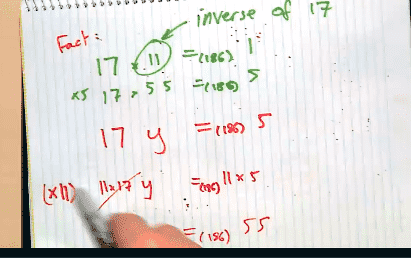 inverse of 17
Fact:
17 × 11 =(186) 1
×5 17 × 55 =(186) 5
17 y =(186) 5
(×11) 11×17 y =(186) 11×5
=(186) 55